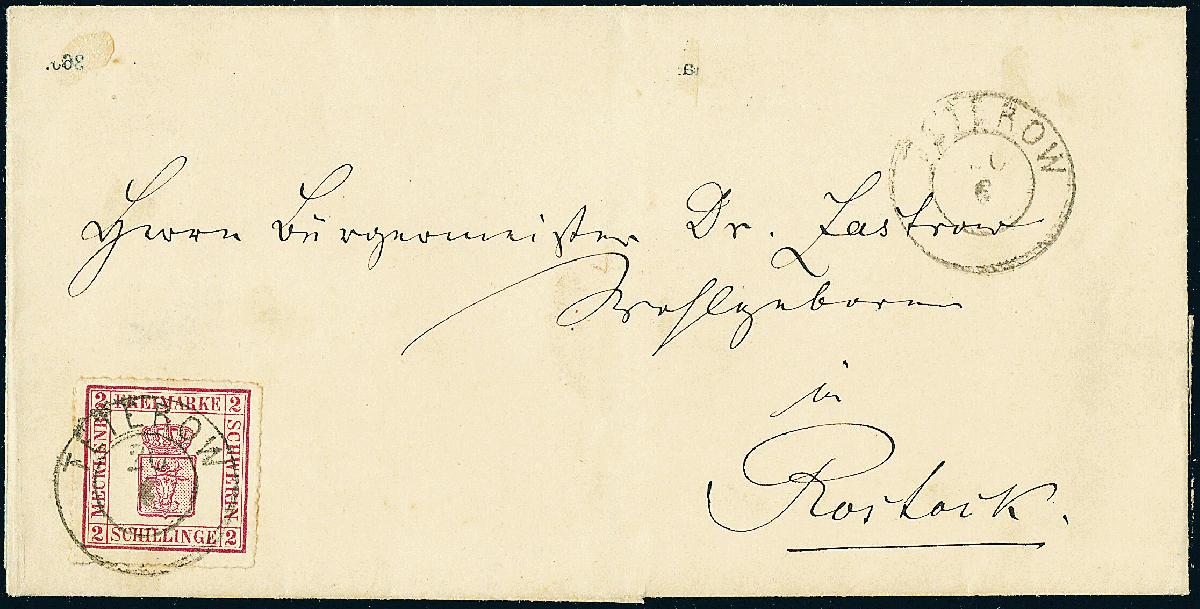 TETEROW
Herrn Bürgermeister Dr. Zastrow
Wohlgeboren
in
Rostock.
2 FREIMARKE 2
MECKLENB.
SCHWERIN
2 SCHILLINGE 2
TETEROW